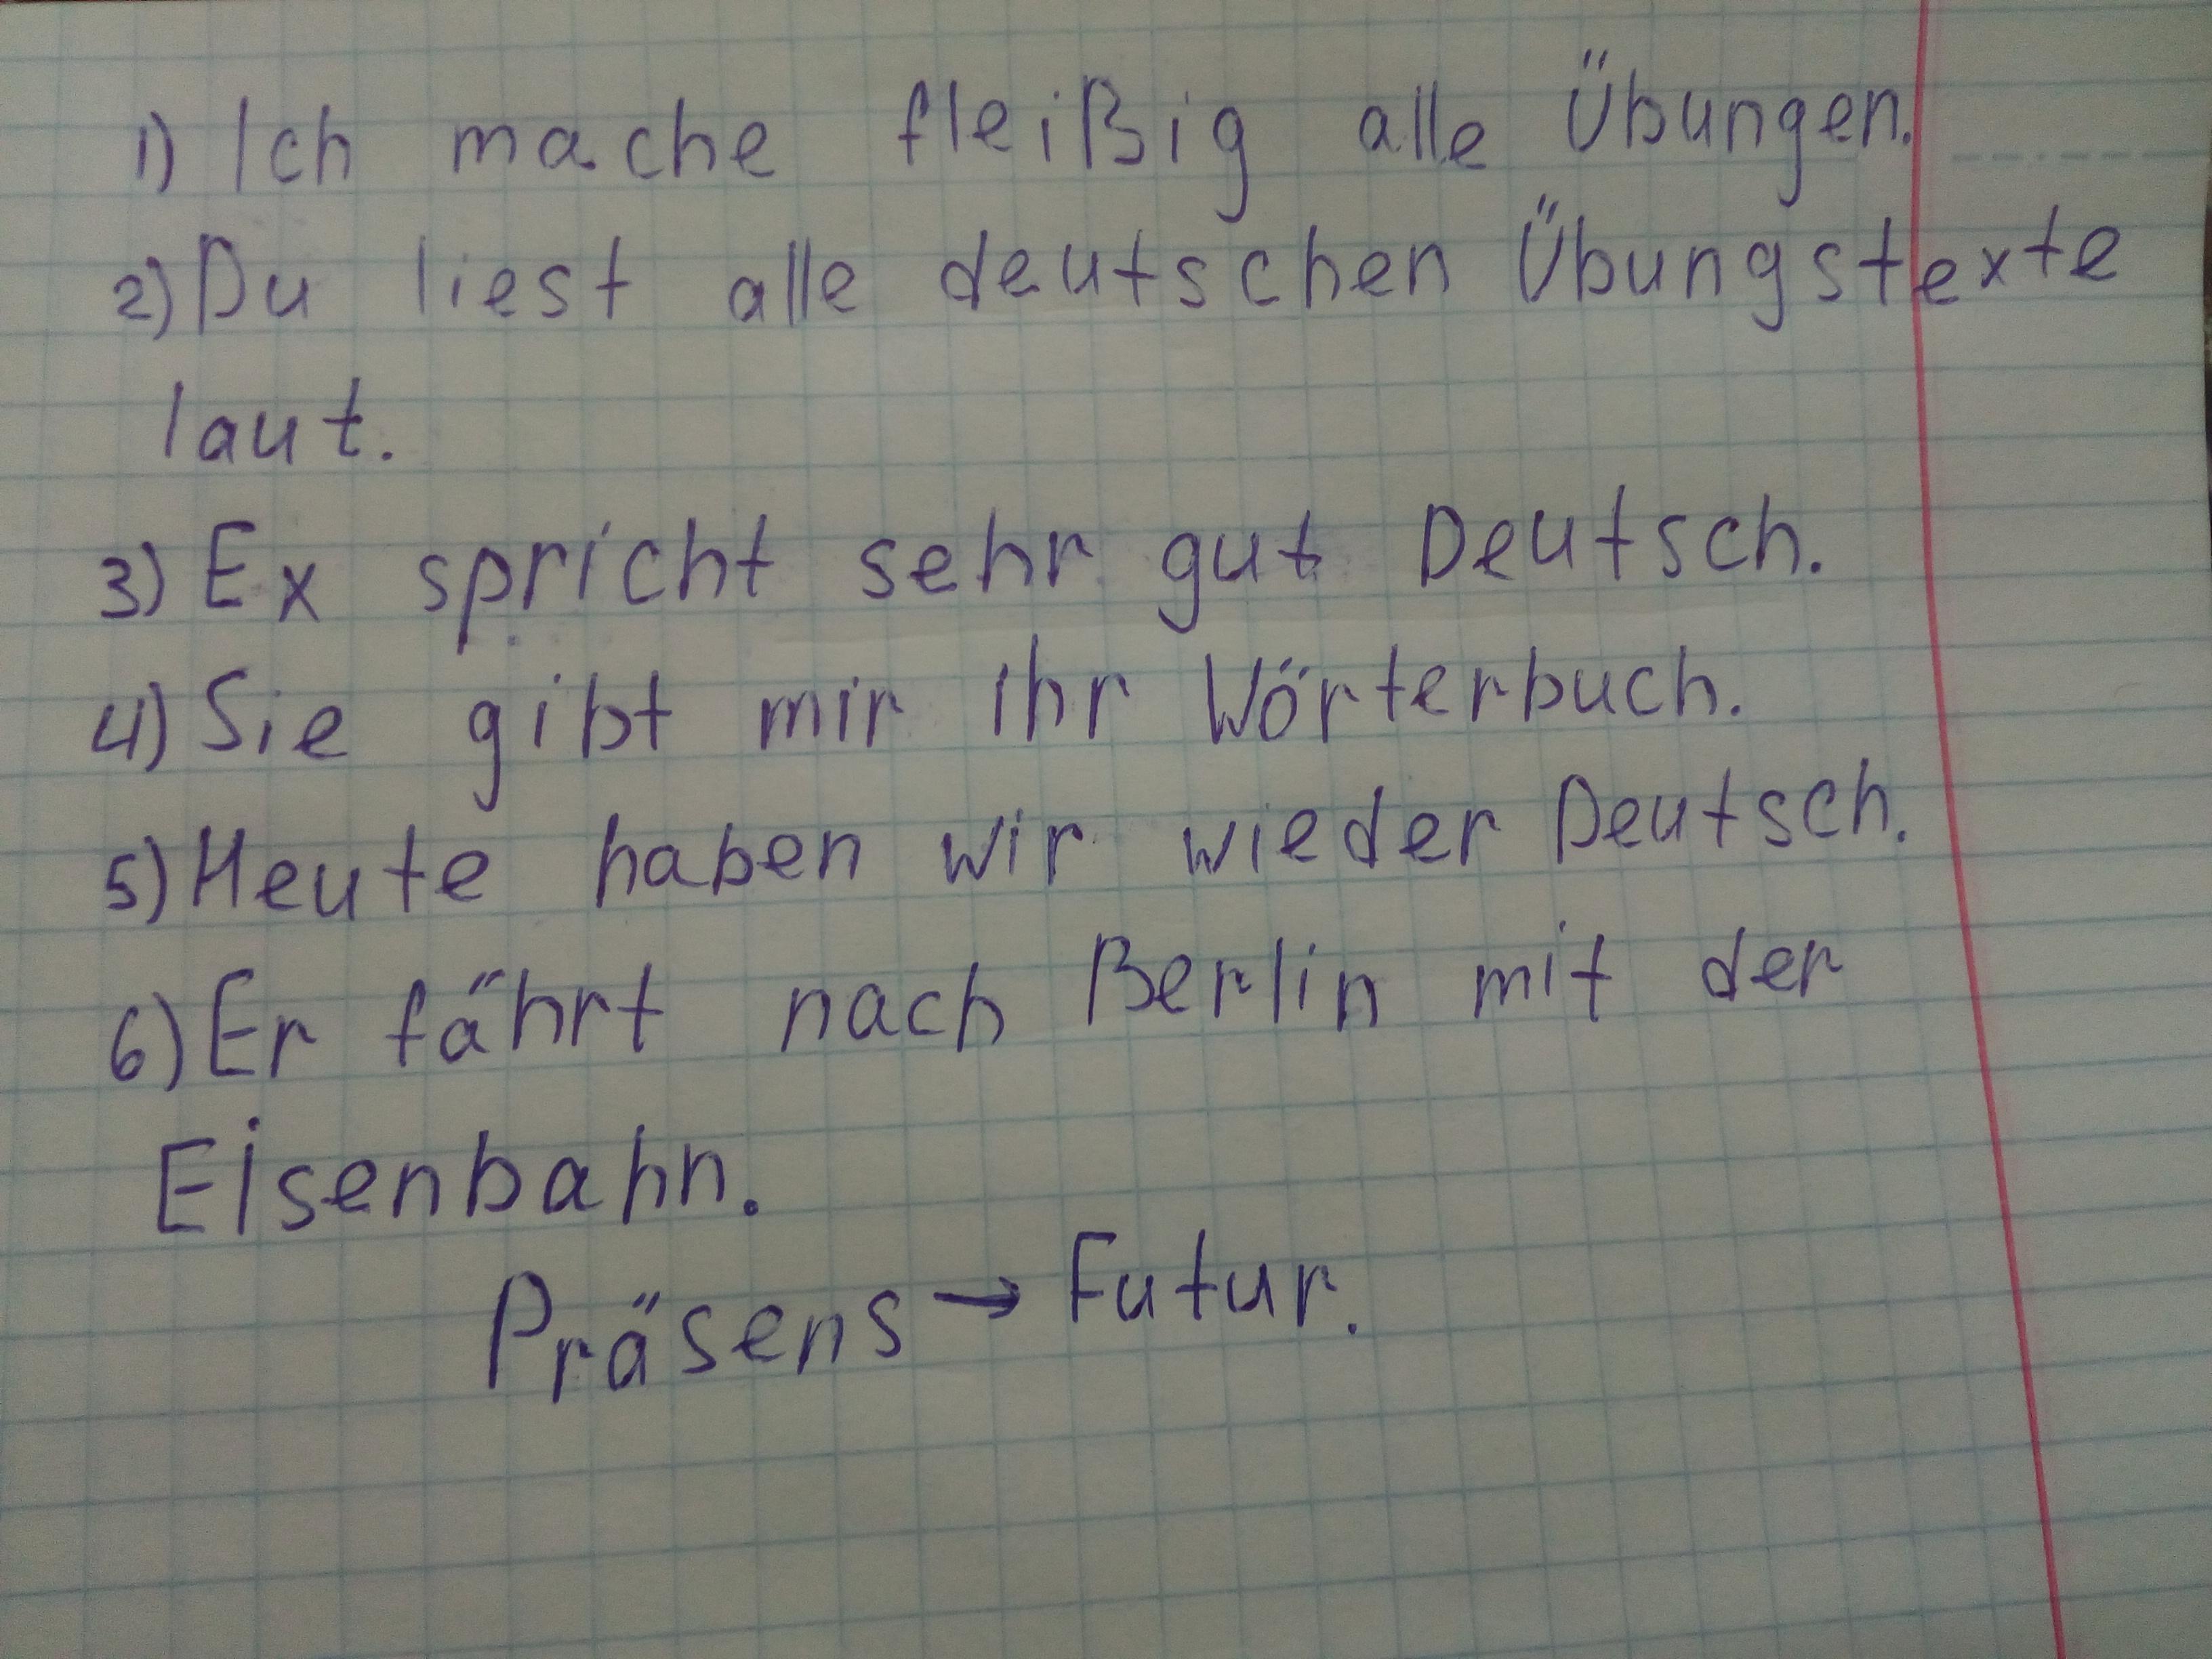 1) Ich mache fleißig alle Übungen.
2) Du liest alle deutschen Übungstexte
laut.
3) Ex spricht sehr gut Deutsch.
4) Sie gibt mir ihr Wörterbuch.
5) Heute haben wir wieder Deutsch.
6) Er fährt nach Berlin mit der
Eisenbahn.
Präsens → Futur.